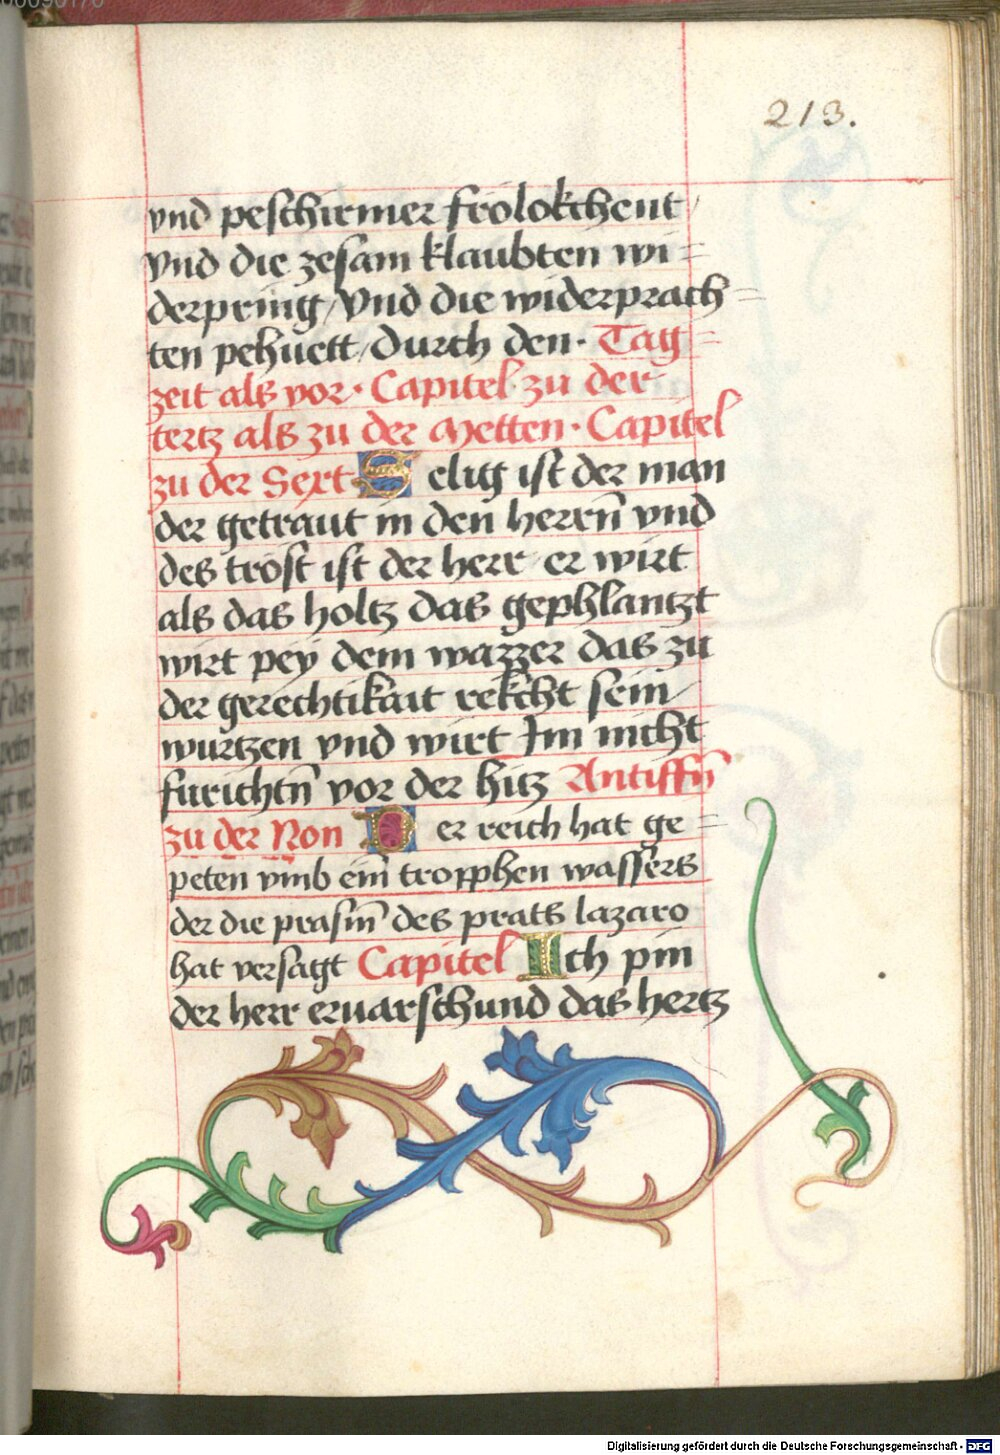 213.
vnd peschirmer frölokchent /
vnd die zesam klaubten wi=
derpring / vnd die widerprach=
ten pehuett / durch den · Tag=
zeit als vor · Capitel zu der
tertz als zu der Metten · Capitel
zu der Sext Selig ist der man
der getraut in den herrn̄ vnd
des trost ist der herr er wirt
als das holtz das gephlantzt
wirt pey dem wazzer das zu
der gerechtikait rekcht sein
wurtzen vnd wirt Im nicht
furichtn̄ vor der hitz Antiffn̄
zu der Non Der reich hat ge=
peten vmb ein̄ tropphen wassers
der die prasm̄ des prats lazaro
hat versagt Capitel Ich pin
der herr eruarschund das hertz
Digitalisierung gefördert durch die Deutsche Forschungsgemeinschaft - DFG